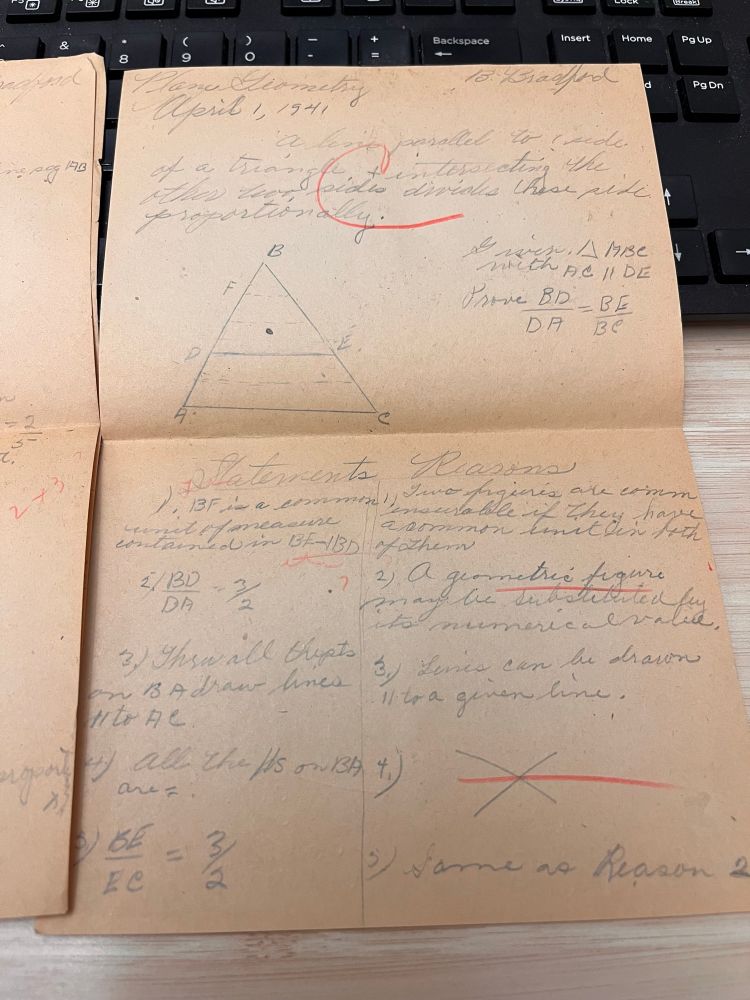 & * ( ) - +
8 9 0 - =
Backspace
Insert Home PgUp
PgDn
Lock
(Break)
Bradford
seg AB
= 2
5
2 + 3 ?
Plane Geometry B. Bradford
April 1, 1941
A line parallel to 1 side
of a triangle + intersecting the
other two sides divides these side
proportionally.
C
Given. △ ABC
with AC || DE
Prove BD = BE
DA BC
B
F
D E
A C
Statements Reasons
1). BF is a common
unit of measure
contained in BE + BD
?
1.) Two figures are comm
ensurable if they have
a common unit in both
of them
2) BD = 3/2
DA
2) A geometric figure
may be substituted by
its numerical value.
3.) Thru all the pts
on BA draw lines
|| to AC.
3.) Lines can be drawn
|| to a given line.
4) All the //s on BA
are =.
4.)
5) BE = 3/2
EC
5) Same as Reason 2